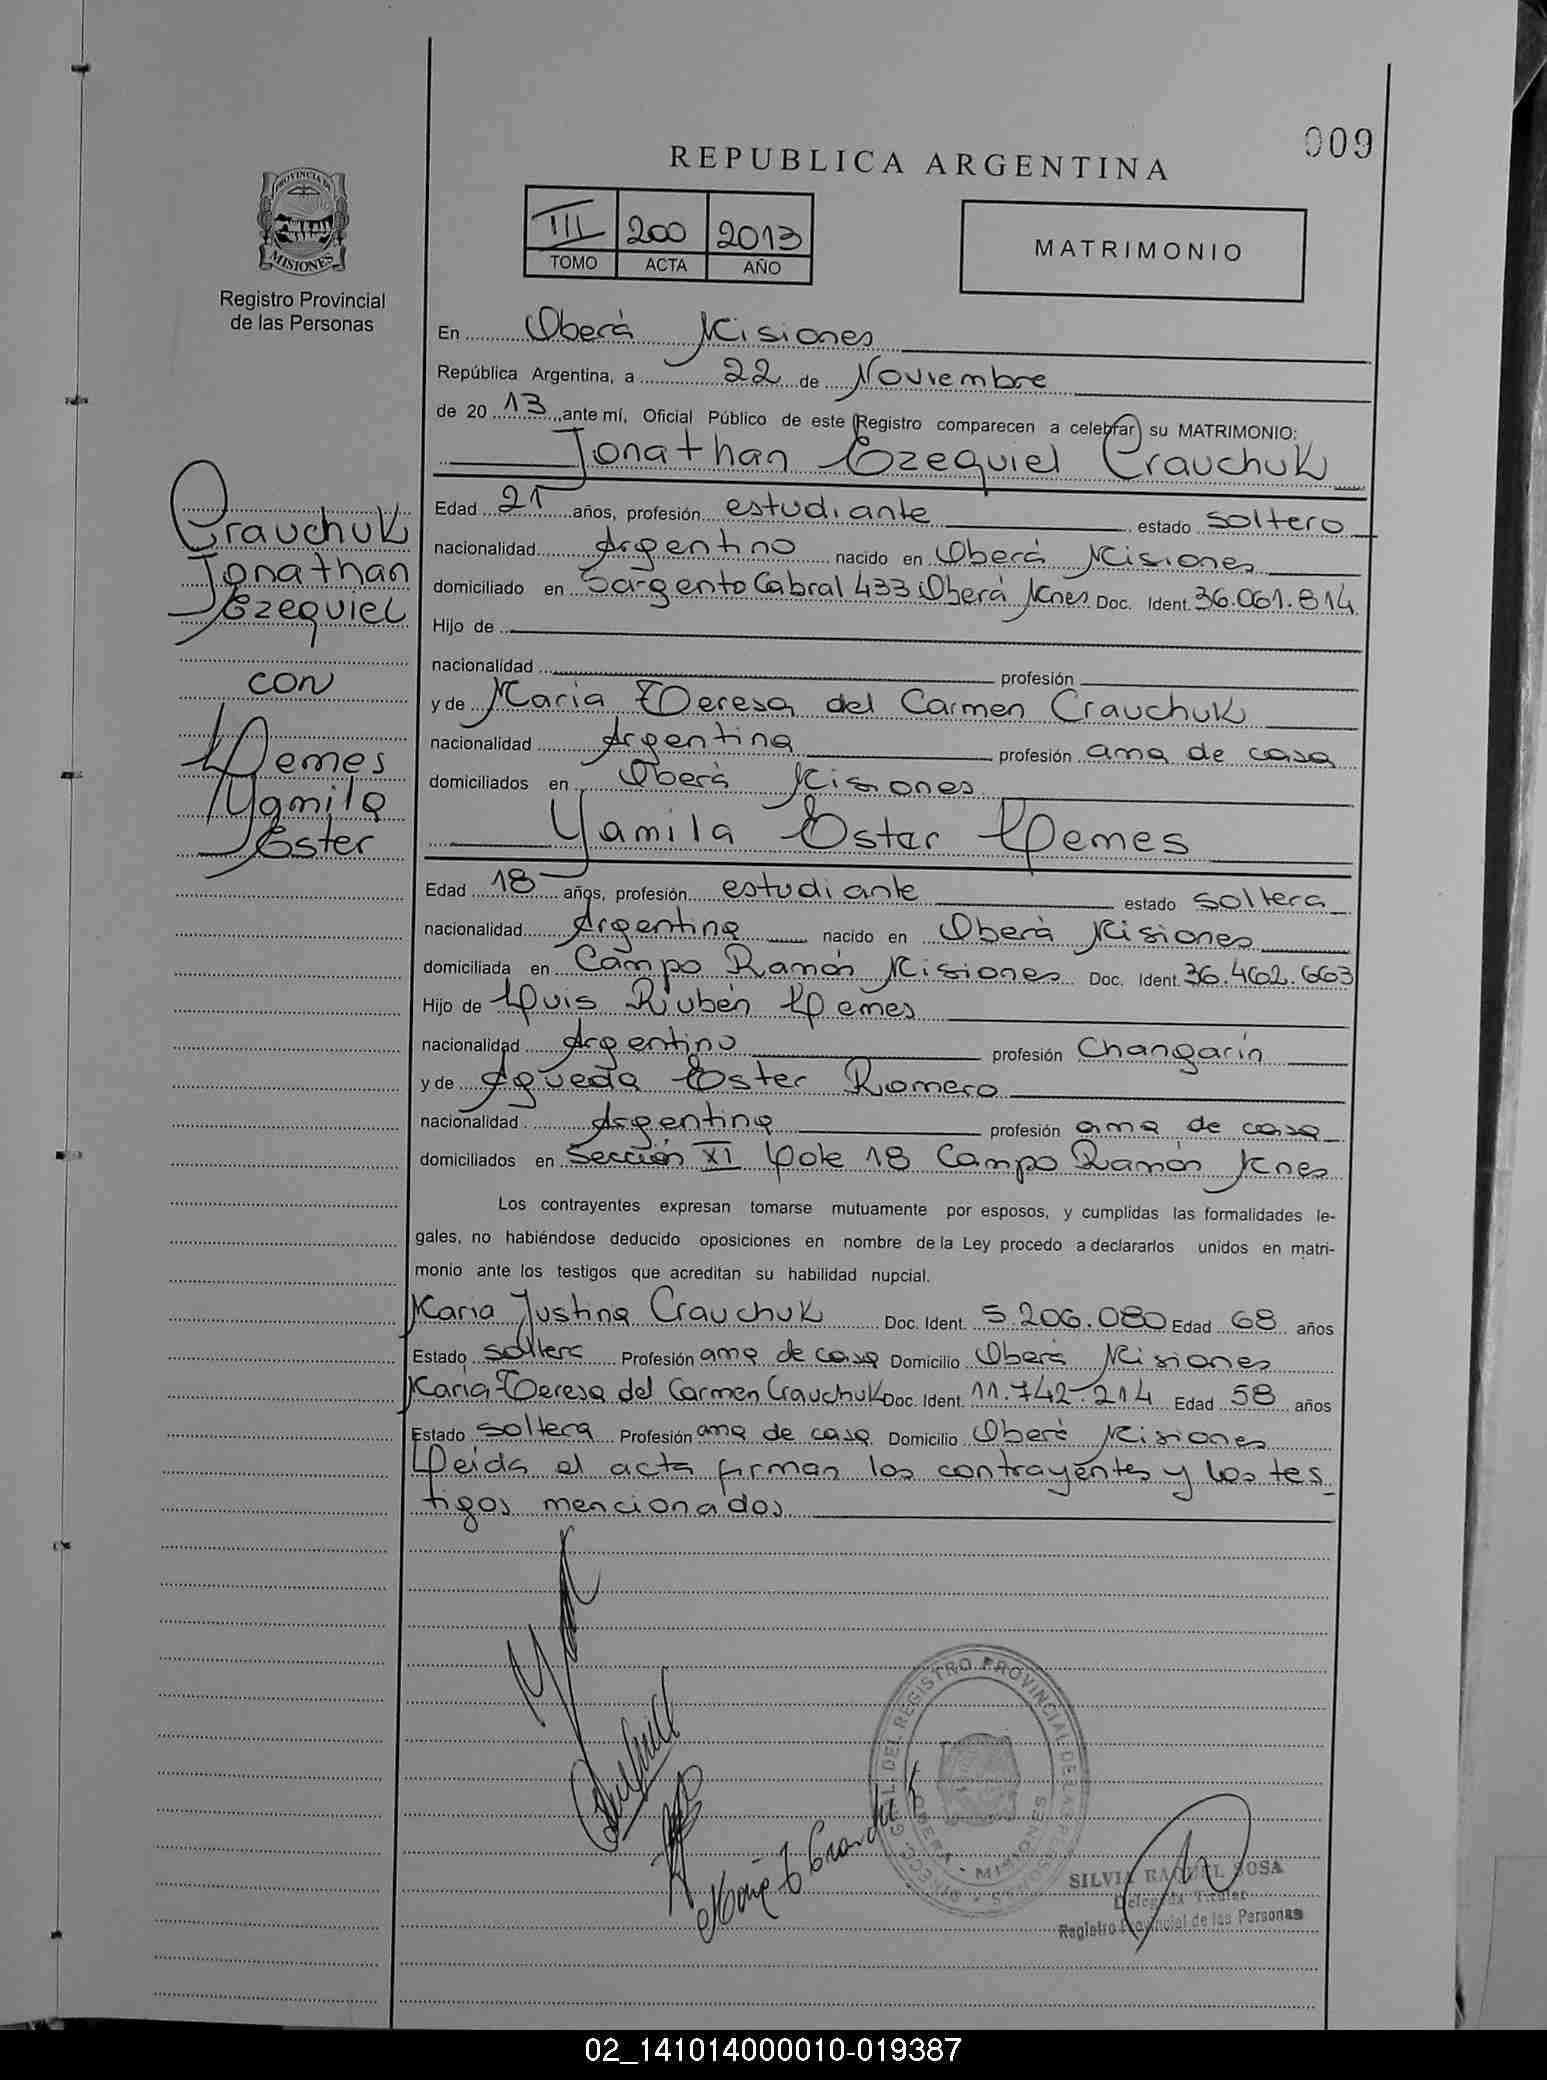 009
REPUBLICA ARGENTINA
III 200 2013
TOMO ACTA AÑO
MATRIMONIO
PROVINCIA DE
MISIONES
Registro Provincial
de las Personas
En Oberá Misiones
República Argentina, a 22 de Noviembre
de 20 13 ante mí, Oficial Público de este Registro comparecen a celebrar su MATRIMONIO:
Jonathan Ezequiel Crauchuk
Crauchuk
Jonathan
Ezequiel
con
Lemes
Yamila
Ester
Edad 21 años, profesión estudiante estado soltero
nacionalidad Argentino nacido en Oberá Misiones
domiciliado en Sargento Cabral 433 Oberá Mnes Doc. Ident. 36.061.814
Hijo de
nacionalidad profesión
y de Maria Teresa del Carmen Crauchuk
nacionalidad Argentina profesión ama de casa
domiciliados en Oberá Misiones
Yamila Ester Lemes
Edad 18 años, profesión estudiante estado soltera
nacionalidad Argentina nacido en Oberá Misiones
domiciliada en Campo Ramón Misiones Doc. Ident. 36.462.663
Hijo de Luis Rubén Lemes
nacionalidad Argentino profesión Changarín
y de Agueda Ester Romero
nacionalidad Argentina profesión ama de casa
domiciliados en Sección XI Lote 18 Campo Ramón Mnes
Los contrayentes expresan tomarse mutuamente por esposos, y cumplidas las formalidades le-
gales, no habiéndose deducido oposiciones en nombre de la Ley procedo a declararlos unidos en matri-
monio ante los testigos que acreditan su habilidad nupcial.
Maria Justina Crauchuk Doc. Ident. 5.206.080 Edad 68 años
Estado soltera Profesión ama de casa Domicilio Oberá Misiones
Maria Teresa del Carmen Crauchuk Doc. Ident. 11.742.214 Edad 58 años
Estado soltera Profesión ama de casa Domicilio Oberá Misiones
Leida el acta firman los contrayentes y los tes
tigos mencionados
DEL REGISTRO PROVINCIAL DE LAS PERSONAS
OBERA - MISIONES
Maria T Crauchuk
SILVIA RAQUEL SOSA
Delegada Titular
Registro Provincial de las Personas
02_141014000010-019387